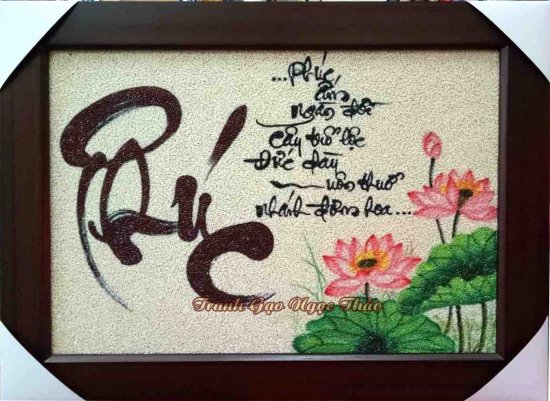 Phúc
...Phúc
ấm
ngàn đời
cây trổ lộc
Đức dày
muôn thuở
nhánh đơm hoa...
Tranh Gạo Ngọc Thảo